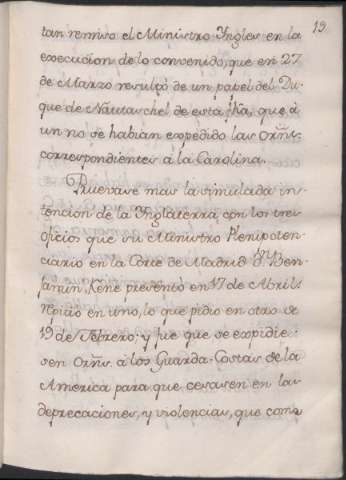 19
tan remiso el Ministro Ingles en la
execucion de lo convenido, que en 27
de Marzo resultó de un papel del Du-
que de Nautaschel de esta fha, que à
un no se habian expedido las Orñs.
correspondientes à la Carolina.
Pruevase mas la simulada in-
tencion de la Inglaterra con los tres
oficios que su Ministro Plenipoten-
ciario en la Corte de Madrid Dn. Ben-
jamin Kene presentò en 17 de Abril:
Repitio en uno, lo que pidio en otro de
19 de Febrero: y fue que se expidie-
sen Orñs. à los Guarda-Costas de la
America para que cesasen en las
deprecaciones, y violencias, que come